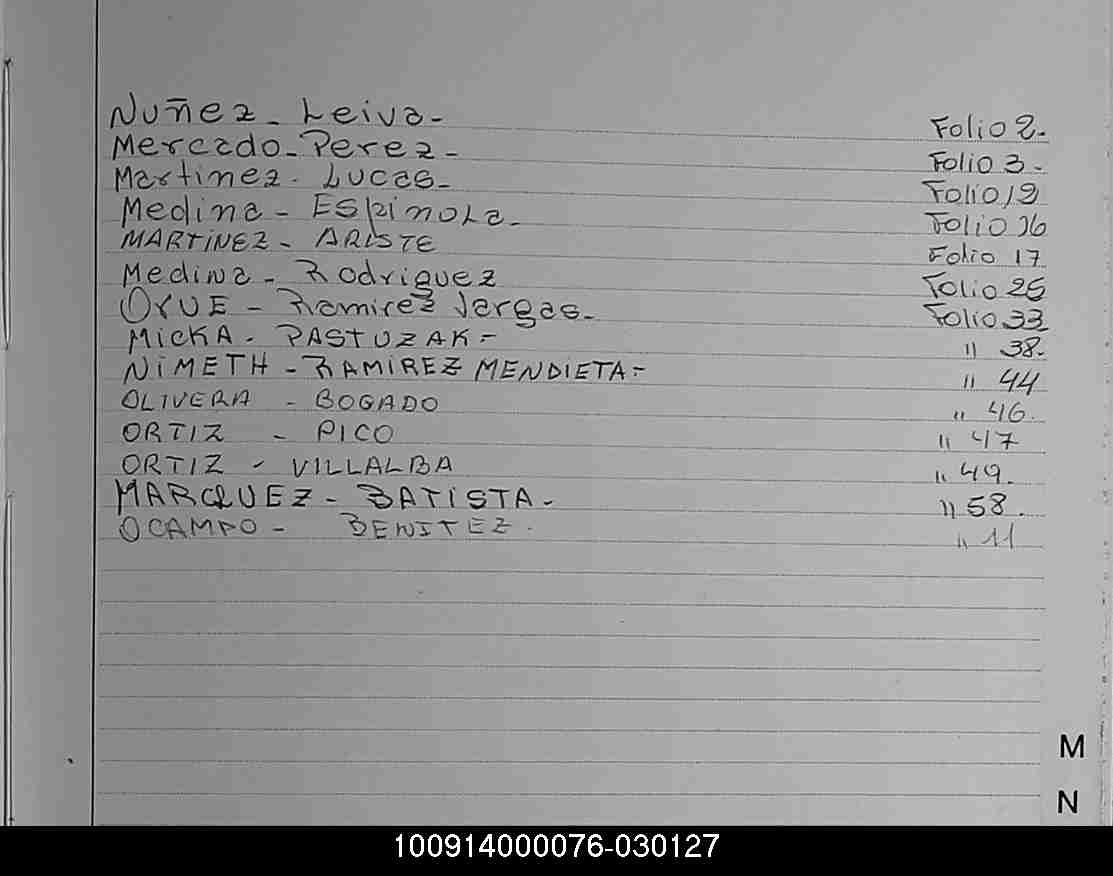 Nuñez - Leiva - Folio 2.
Mercado - Perez - Folio 3.
Martinez - Lucas - Folio 12
Medina - Espinola - Folio 16
MARTINEZ - ARISTE Folio 17
Medina - Rodriguez Folio 25
ORUE - Ramirez Vargas - Folio 33
MickA - PASTUZAK = " 38.
NIMETH - RAMIREZ MENDIETA = " 44
OLIVERA - BOGADO " 46.
ORTIZ - PICO " 47
ORTIZ - VILLALBA " 49.
MARQUEZ - BATISTA - " 58.
OCAMPO - BENITEZ. " 11
M
N
100914000076-030127